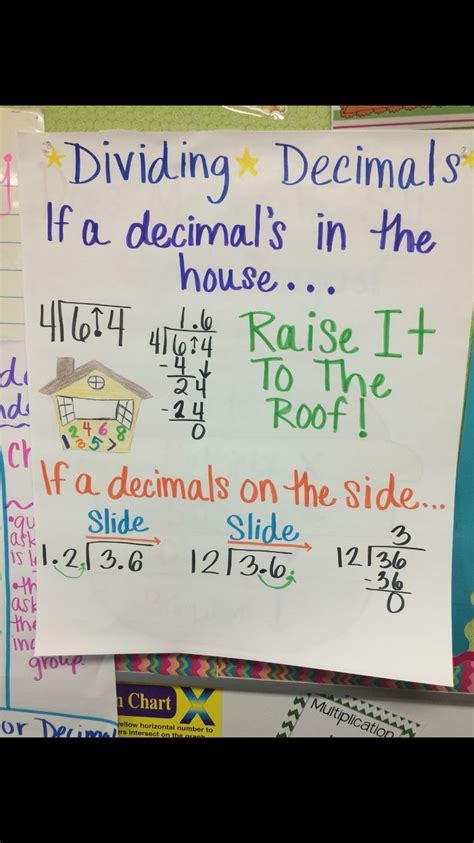 Dividing Decimals
If a decimal's in the
house...
4 6.4
1.6
4 6.4
-4
24
-24
0
Raise It
To The
Roof!
2 4 6 8
1 3 5 7
If a decimals on the side...
Slide
1.2 3.6
Slide
12 3.6
3
12 36
-36
0
ask
is
ask
the
group.
or Decimal
Chart
yellow horizontal number
rs intersect on the graph
Multiplication